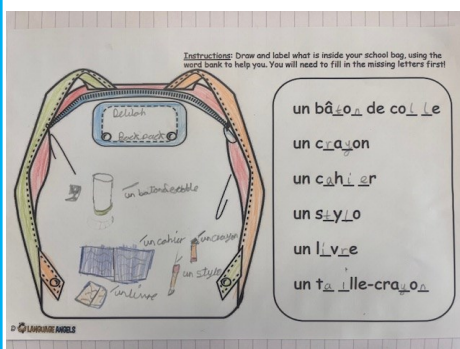 Instructions: Draw and label what is inside your school bag, using the
word bank to help you. You will need to fill in the missing letters first!
Delilah
Backpack
un batondecolle
un cahier
un crayon
un stylo
un livre
un bâton de colle
un crayon
un cahier
un stylo
un livre
un taille-crayon
LANGUAGE ANGELS